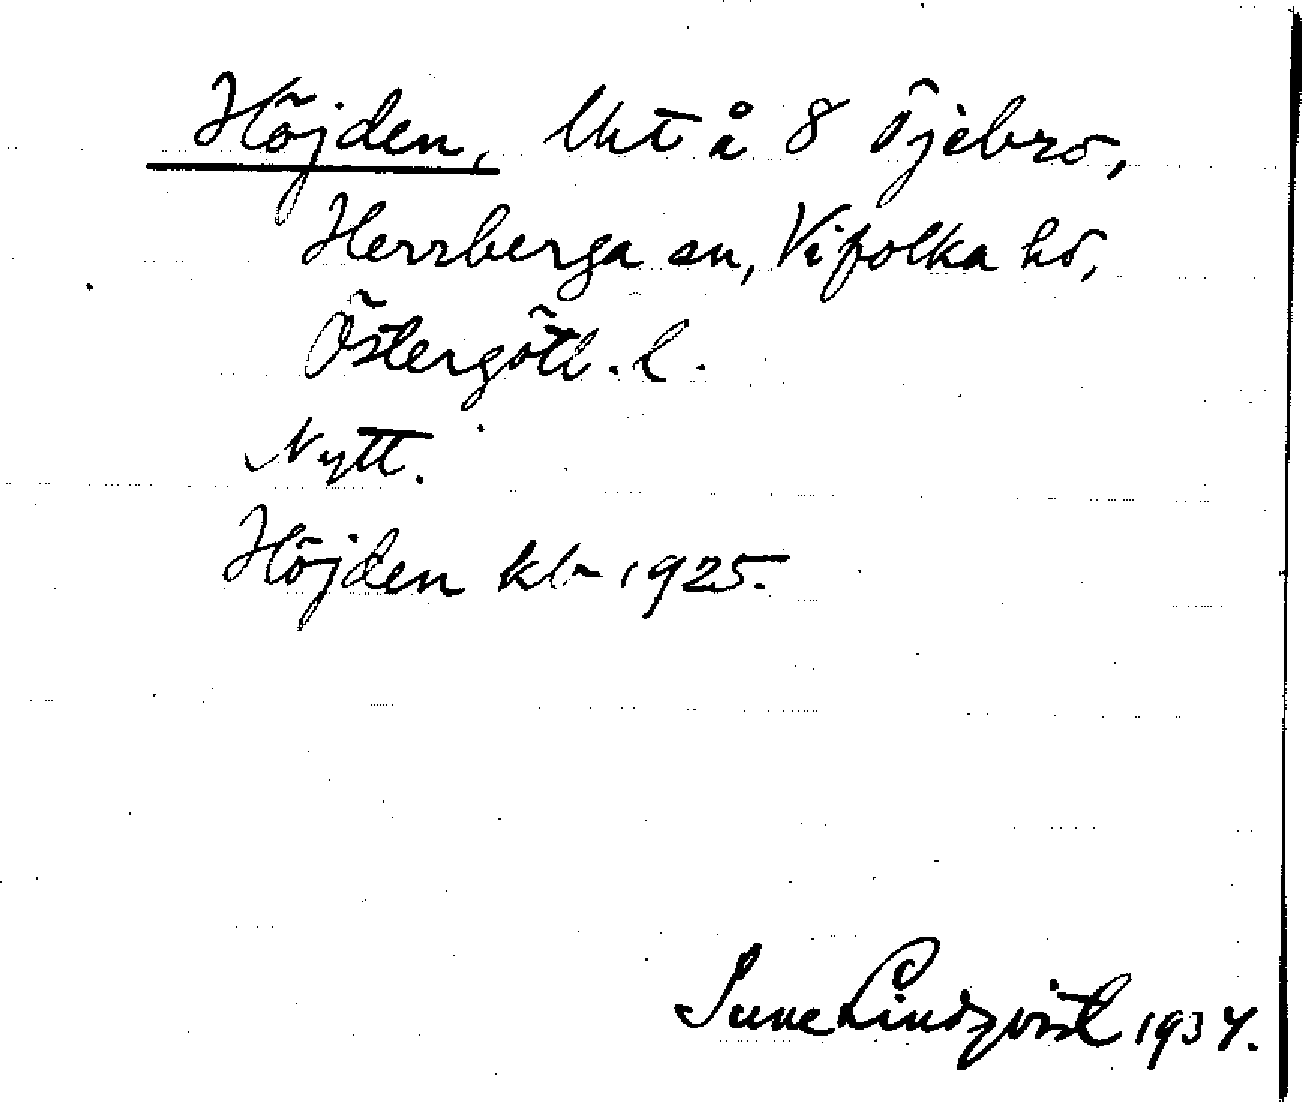 Höjden, Uht å 8 Öjebro,
Herrberga sn, Vifolka hd,
Östergötl. l.
Nytt.
Höjden kb 1925.
Sune Lindqvist 1934.